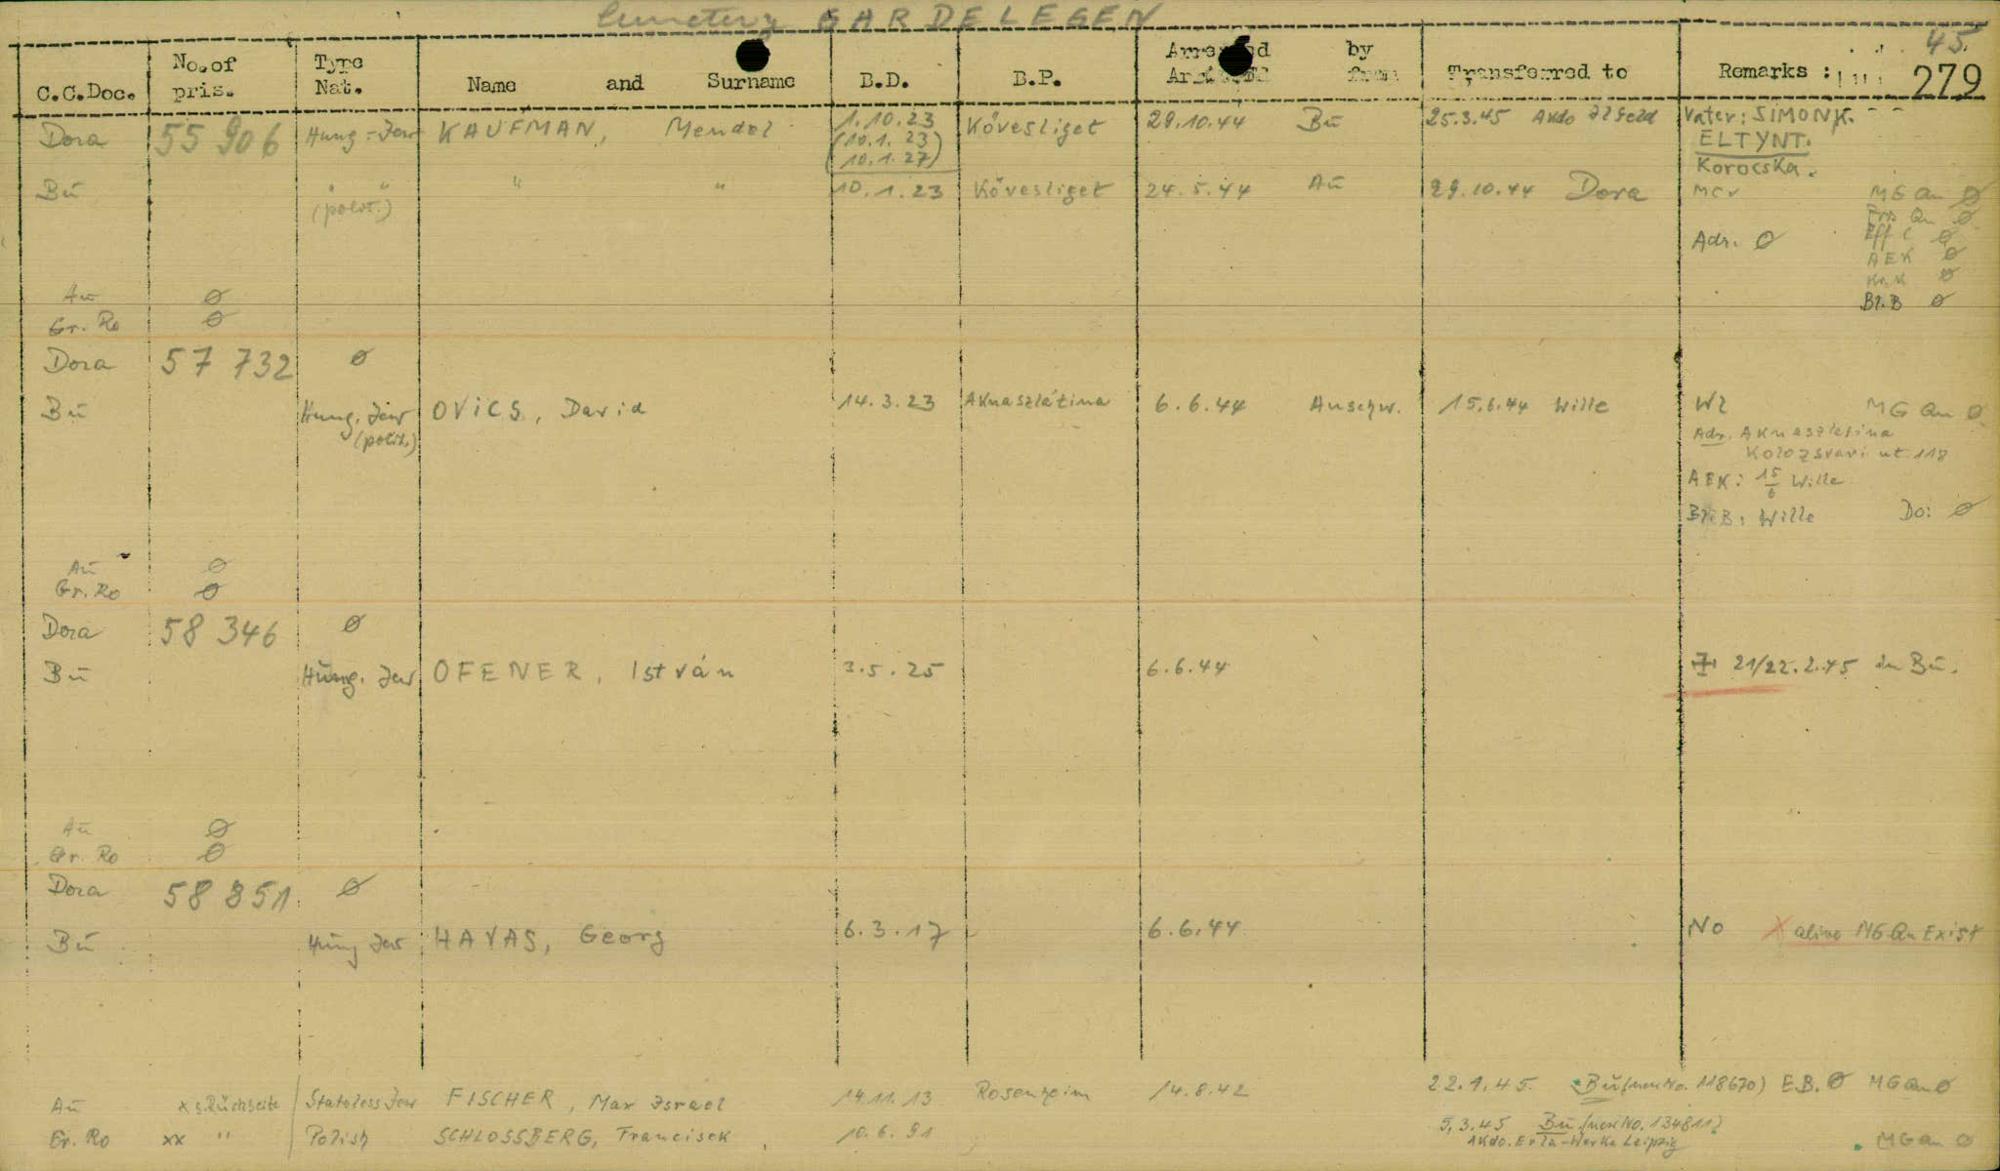 Cemetery GARDELEGEN
45.
C.C.Doc. No. of pris. Type Nat. Name and Surname B.D. B.P. by Transferred to Remarks : 279
Dora 55 906 Hung-Jew KAUFMAN, Mendel 1.10.23 Kövesliget 29.10.44 Bu 25.3.45 Akdo Ilfeld Vater: SIMON K.
(10.1.23) ELTYNT.
10.1.27) Korocska.
Bu " " " " 10.1.23 Kövesliget 24.5.44 Au 29.10.44 Dora MCV MG Qu Ø
(polit.) Qu Ø
Adr. Ø Eff C Ø
AEK Ø
Kr.K Ø
Au Ø Bl.B Ø
Gr. Ro Ø
Dora 57 732 Ø
Bu Hung. Jew OVICS, David 14.3.23 Aknaszlatina 6.6.44 Auschw. 15.6.44 Wille WZ MG Qu Ø
(polit.) Adr. Aknaszlatina
Kolozsvari ut. 118
AEK: 15/6 Wille
Bl.B: Wille Do: Ø
Au Ø
Gr. Ro Ø
Dora 58 346 Ø
Bu Hung. Jew OFENER, István 3.5.25 6.6.44 21/22.2.45 in Bu.
Au Ø
Gr. Ro Ø
Dora 58 851 Ø
Bu Hung Jew HAVAS, Georg 6.3.17 6.6.44 No X alive MG Qu Exist
Au x s. Rückseite Stateless Jew FISCHER, Max Israel 14.11.13 Rosenheim 14.8.42 22.1.45 Bu (neu No. 118670) E.B. Ø MG Qu Ø
Gr. Ro xx " Polish SCHLOSSBERG, Francisek 10.6.91 5.3.45 Bu (neu No. 134811)
AKdo. Erla-Werke Leipzig MG Qu Ø